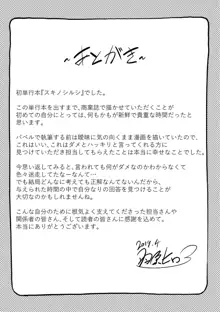 ～あとがき～
初単行本『スキノシルシ』でした。
この単行本を出すまで、商業誌で描かせていただくことが
初めての自分にとっては、何もかもが新鮮で貴重な時間だったと
思います。
バベルで執筆する前は曖昧に気の向くまま漫画を描いていたので、
これはいい、これはダメとハッキリと言ってくれる方に
見つけていただき担当してもらえたことは本当に幸せなことでした。
今思い返してみると、言われても何がダメなのかわからなくて
色々迷走してたなーってなってます。
でも結局どんなに考えても正解なんてないんだから、
与えられた時間の中で自分なりの回答を見つけることが
大切なのかもしれませんね。
こんな自分のために根気よく支えてくださった担当さんや
関係者の皆さん、そして読者の皆さんに感謝を込めて、
本当にありがとうございます。
2017.4